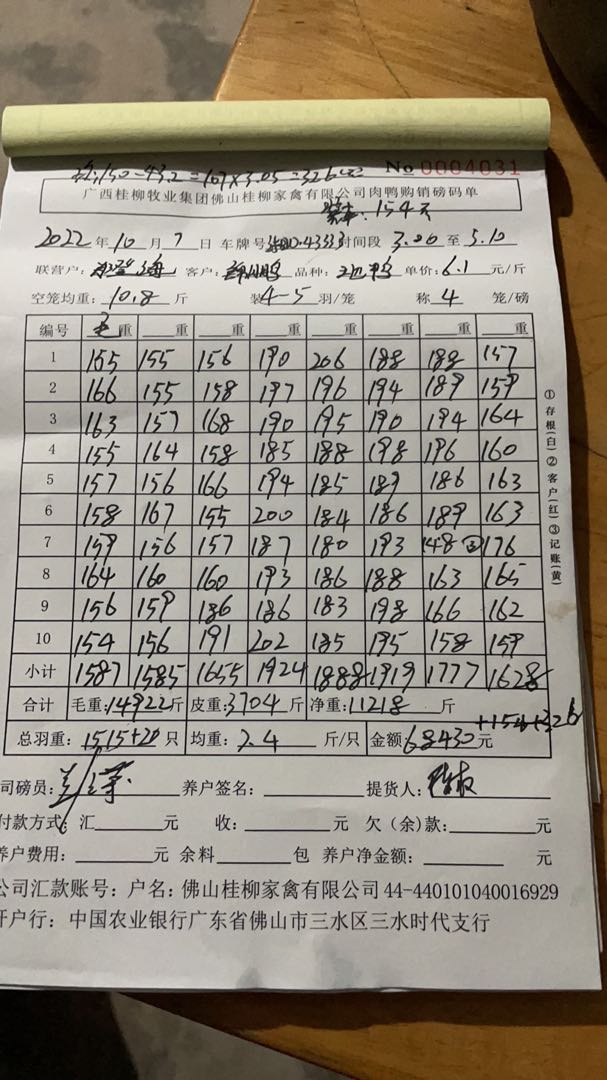 150-43.2=107×3.05=326
No 0004031
广西桂柳牧业集团佛山桂柳家禽有限公司肉鸭购销磅码单
154天
2022年10月7日 车牌号 时间段 3.00至5.10
联营户： 客户： 品种： 单价：6.1元/斤
空笼均重：10.8斤 装4-5羽/笼 称4笼/磅
编号 毛重 重 重 重 重 重 重 重
1 165 155 156 190 206 188 188 157
2 166 155 158 197 196 194 189 159
3 163 157 168 190 195 190 194 164
4 155 164 158 185 188 198 196 160
5 157 156 166 194 185 189 186 163
6 158 167 155 200 184 186 189 163
7 159 156 157 187 180 193 148③ 176
8 164 160 160 193 186 188 163 165
9 156 159 186 186 183 198 166 162
10 154 156 191 202 185 195 158 159
小计 1587 1585 1655 1924 1888 1919 1777 1628
合计 毛重：14922斤 皮重：3704斤 净重：11218斤
+154+326
总羽重：1515+20只 均重：7.4斤/只 金额68430元
司磅员： 养户签名： 提货人：
付款方式：汇 元 收： 元 欠（余）款： 元
养户费用： 元 余料 包 养户净金额： 元
公司汇款账号：户名：佛山桂柳家禽有限公司 44-440101040016929
开户行：中国农业银行广东省佛山市三水区三水时代支行
①存根(白)②客户(红)③记账(黄)